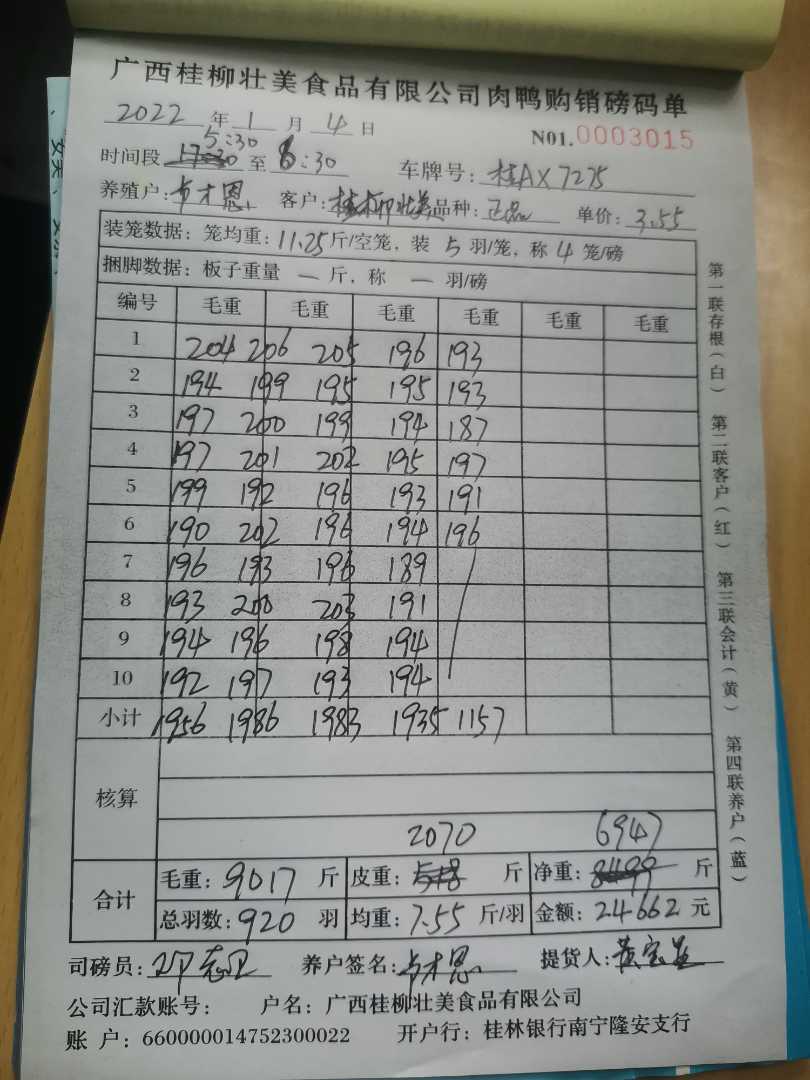 广西桂柳壮美食品有限公司肉鸭购销磅码单
2022 年 1 月 4 日 N01.0003015
5:30
时间段 17:30 至 6:30 车牌号: 桂AX7275
养殖户: 卢才恩 客户: 桂柳壮美 品种: 正品 单价: 3.55
装笼数据: 笼均重: 11.25 斤/空笼, 装 5 羽/笼, 称 4 笼/磅
捆脚数据: 板子重量 — 斤, 称 — 羽/磅
编号 毛重 毛重 毛重 毛重 毛重 毛重
1 204 206 205 196 193
2 194 199 195 195 193
3 197 200 199 194 187
4 197 201 202 195 197
5 199 192 196 193 191
6 190 202 196 194 196
7 196 193 196 189
8 193 200 203 191
9 194 196 198 194
10 192 197 193 194
小计 1956 1986 1983 1935 1157
核算
2070 6947
合计
毛重: 9017 斤 皮重: 518 斤 净重: 8499 斤
总羽数: 920 羽 均重: 7.55 斤/羽 金额: 24662 元
司磅员: 养户签名: 卢才恩 提货人: 黄宝
公司汇款账号: 户名: 广西桂柳壮美食品有限公司
账 户: 660000014752300022 开户行: 桂林银行南宁隆安支行
第一联存根(白) 第二联客户(红) 第三联会计(黄) 第四联养户(蓝)